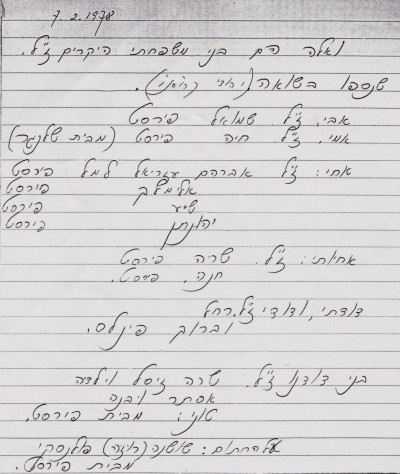 7.2.1978
ואלה הם בני משפחתי היקרים ז"ל.
שנספו בשואה
אבי, ז"ל. שמואל פירסט
אמי, ז"ל חיה פירסט (מבית שלנגר)
אחי: ז"ל אברהם עזריאל למל פירסט
אלימלך פירסט
שייע פירסט
יהונתן פירסט
אחותי: ז"ל. שרה פירסט
חנה. פירסט.
דודתי, ודודי ז"ל. רחל
וברוך פינלס.
בני דודנו ז"ל. שרה זיסל וילדיה
אסתר ויבנה
טוני: מבית פירסט.
על החתום: שושנה (רוזה) פולנסקי
מבית פירסט.